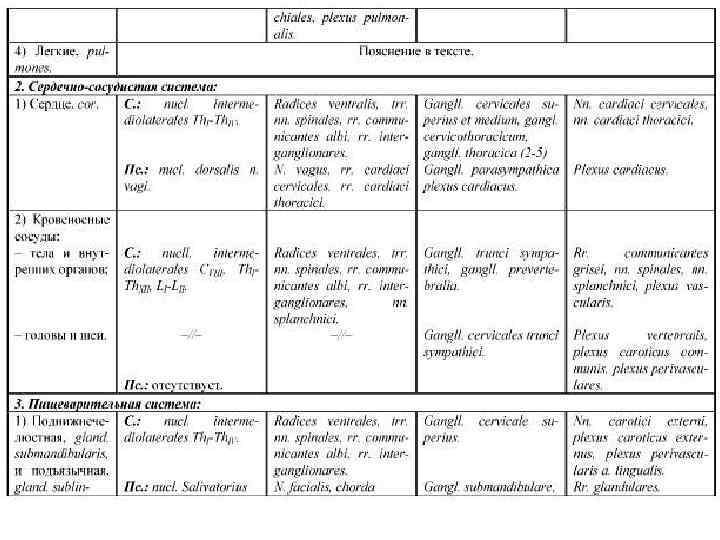 chiales, plexus pulmon-
alis.
4) Легкие, pul-
mones.
Пояснение в тексте.
2. Сердечно-сосудистая система:
1) Сердце, cor.
С.: nucl. interme-
diolaterales ThI-ThIV.
Пс.: nucl. dorsalis n.
vagi.
Radices ventralis, trr.
nn. spinales, rr. commu-
nicantes albi, rr. inter-
ganglionares.
N. vagus, rr. cardiaci
cervicales, rr. cardiaci
thoracici.
Gangll. cervicales su-
perius et medium, gangl.
cervicothoracicum,
gangll. thoracica (2-5)
Gangll. parasympathica
plexus cardiacus.
Nn. cardiaci cervicales,
nn. cardiaci thoracici.
Plexus cardiacus.
2) Кровеносные
сосуды:
– тела и внут-
ренних органов;
С.: nucll. interme-
diolaterales CVIII, ThI-
ThXII, LI-LII.
Radices ventrales, trr.
nn. spinales, rr. commu-
nicantes albi, rr. inter-
ganglionares, nn.
splanchnici.
Gangll. trunci sympa-
thici, gangll. preverte-
bralia.
Rr. communicantes
grisei, nn. spinales, nn.
splanchnici, plexus vas-
cularis.
– головы и шеи.
–//–
Пс.: отсутствует.
–//–
Gangll. cervicales trunci
sympathici.
Plexus vertebralis,
plexus caroticus com-
munis, plexus perivascu-
lares.
3. Пищеварительная система:
1) Поднижнече-
люстная, gland.
submandibularis,
и подъязычная,
gland. sublin-
С.: nucl. interme-
diolaterales ThI-ThIV.
Пс.: nucl. Salivatorius
Radices ventrales, trr.
nn. spinales, rr. commu-
nicantes albi, rr. inter-
ganglionares.
N. facialis, chorda
Gangll. cervicale su-
perius.
Gangl. submandibulare.
Nn. carotici externi,
plexus caroticus exter-
nus, plexus perivascu-
laris a. lingualis.
Rr. glandulares.